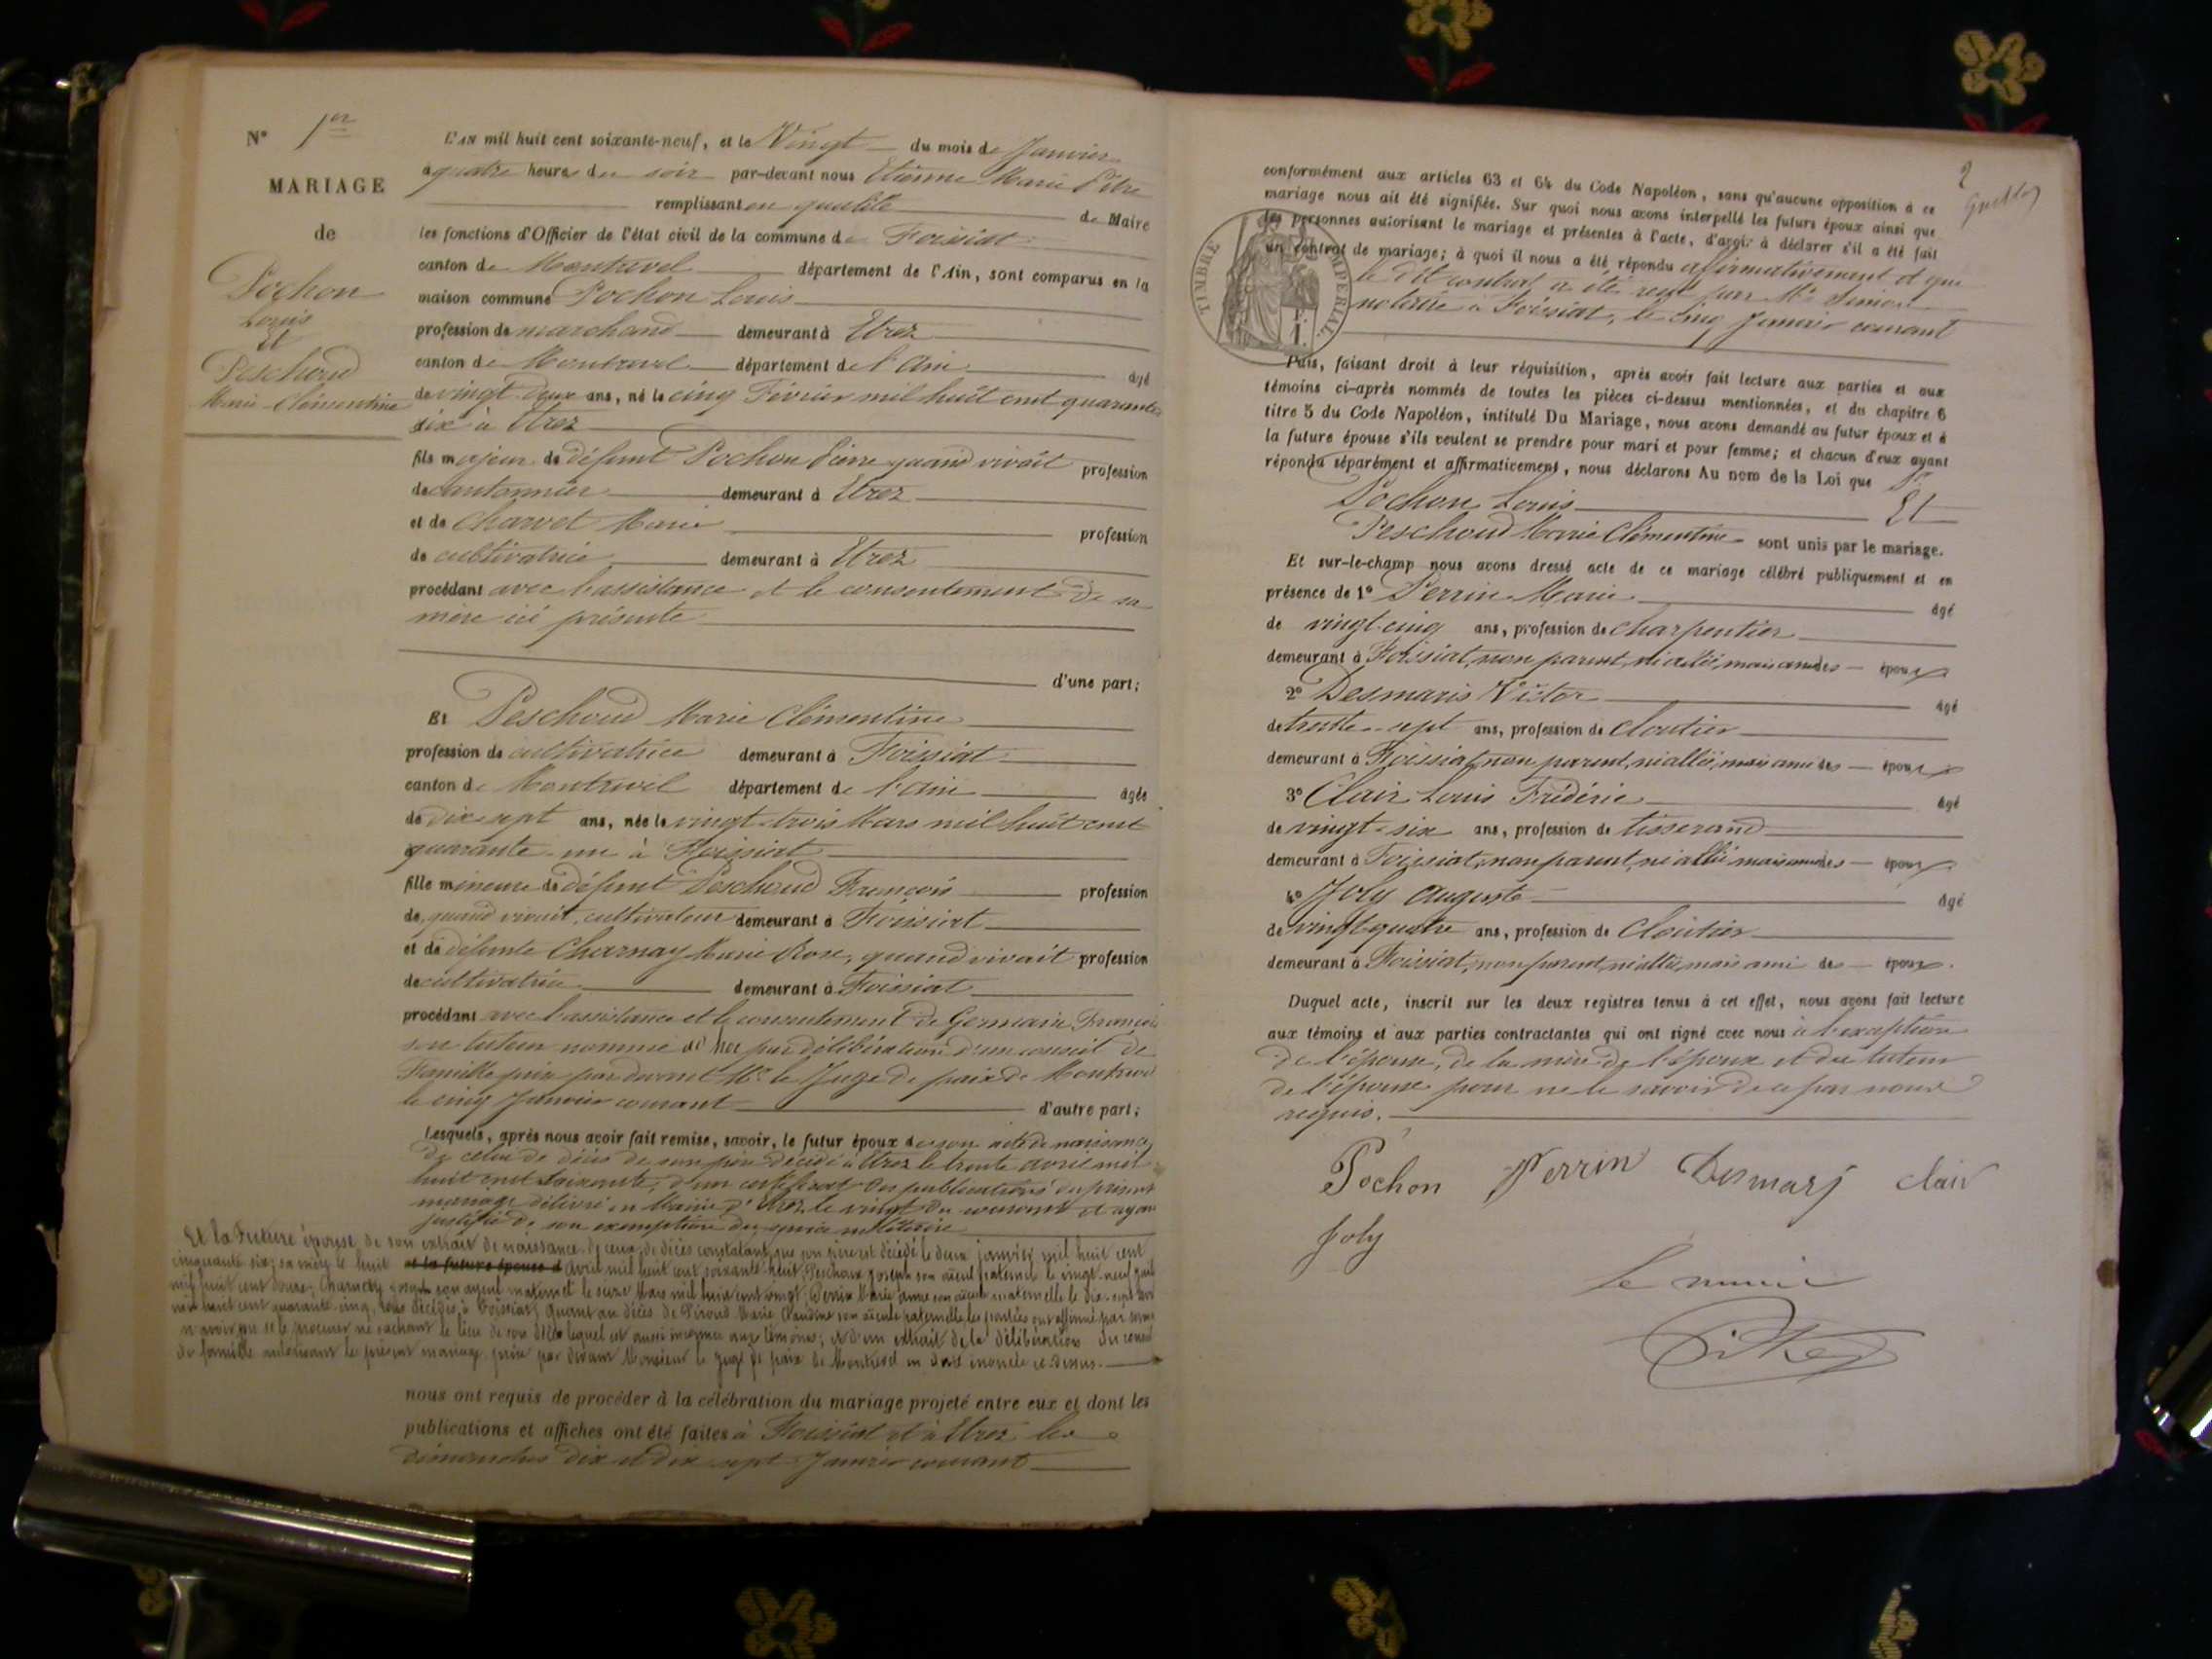 N° 1er
MARIAGE
de
Pochon
Louis
et
Peschoud
Marie-Clémentine
L'AN mil huit cent soixante-neuf, et le Vingt du mois de Janvier
à quatre heures du soir par-devant nous Etienne Marie Pitre
remplissant en qualité de Maire
les fonctions d'Officier de l'état civil de la commune de Foissiat
canton de Montrevel département de l'Ain, sont comparus en la
maison commune Pochon Louis
profession de marchand demeurant à Etrez
canton de Montrevel département de l'Ain âgé
de vingt-deux ans, né le cinq Février mil huit cent quarante
six à Etrez
fils majeur de défunt Pochon Pierre quand vivait profession
de cantonnier demeurant à Etrez
et de Charvet Marie profession
de cultivatrice demeurant à Etrez
procédant avec l'assistance et le consentement de sa
mère ici présente
d'une part;
Et Peschoud Marie Clémentine
profession de cultivatrice demeurant à Foissiat
canton de Montrevel département de l'Ain âgée
de dix-sept ans, née le vingt-trois Mars mil huit cent
quarante-un à Foissiat
fille mineure de défunt Peschoud François profession
de, quand vivait, cultivateur demeurant à Foissiat
et de défunte Charnay Marie Rose, quand vivait profession
de cultivatrice demeurant à Foissiat
procédant avec l'assistance et le consentement de Germain François
son tuteur nommé par délibération d'un conseil de
Famille par devant Mr le Juge de paix de Montrevel
le cinq Janvier courant d'autre part;
Lesquels, après nous avoir fait remise, savoir, le futur époux de son acte de naissance,
de celui de décès de son père décédé à Etrez le trente avril mil
huit cent soixante, d'un certificat des publications du présent
mariage délivré en Mairie d'Etrez le vingt du courant et ayant
justifié de son exemption du service militaire
Et la Future épouse de son extrait de naissance, de ceux de décès constatant que son père est décédé le deux janvier mil huit cent
cinquante six, sa mère le huit et la future épouse d avril mil huit cent soixante huit, Peschoux Joseph son aïeul paternel le vingt-neuf
mil huit cent douze, Charnay Joseph son aïeul maternel le seize Mars mil huit cent vingt, Perrin Marie Anne son aïeule maternelle le dix-sept
mil huit cent quarante-cinq, tous décédés à Foissiat, quant au décès de Piroud Marie Claudine son aïeule paternelle les parties ont affirmé par serment
n'avoir pu se le procurer ne sachant le lieu de son décès lequel est aussi inconnu aux témoins; et d'un extrait de la délibération du conseil
de famille autorisant le présent mariage prise par devant Monsieur le juge de paix de Montrevel en date énoncée ci-dessus.
nous ont requis de procéder à la célébration du mariage projeté entre eux et dont les
publications et affiches ont été faites à Foissiat et à Etrez les
dimanches dix et dix-sept Janvier courant
2
conformément aux articles 63 et 64 du Code Napoléon, sans qu'aucune opposition à ce
mariage nous ait été signifiée. Sur quoi nous avons interpellé les futurs époux ainsi que
les personnes autorisant le mariage et présentes à l'acte, d'avoir à déclarer s'il a été fait
un contrat de mariage; à quoi il nous a été répondu affirmativement et que
le dit contrat a été reçu par Me
notaire à Foissiat, le cinq Janvier courant
TIMBRE IMPÉRIAL.
Puis, faisant droit à leur réquisition, après avoir fait lecture aux parties et aux
témoins ci-après nommés de toutes les pièces ci-dessus mentionnées, et du chapitre 6
titre 5 du Code Napoléon, intitulé Du Mariage, nous avons demandé au futur époux et à
la future épouse s'ils veulent se prendre pour mari et pour femme; et chacun d'eux ayant
répondu séparément et affirmativement, nous déclarons Au nom de la Loi que
Pochon Louis Et
Peschoud Marie Clémentine sont unis par le mariage.
Et sur-le-champ nous avons dressé acte de ce mariage célébré publiquement et en
présence de 1° Perrin Marie âgé
de vingt-cinq ans, profession de charpentier
demeurant à Foissiat, non parent, ni allié, mais ami des époux
2° Desmaris Victor âgé
de trente-sept ans, profession de cloutier
demeurant à Foissiat, non parent, ni allié, mais ami des époux
3° Clair Louis Frédéric âgé
de vingt-six ans, profession de tisserand
demeurant à Foissiat, non parent, ni allié mais ami des époux
4° Joly Auguste âgé
de vingt-quatre ans, profession de Cloutier
demeurant à Foissiat, non parent, ni allié, mais ami des époux.
Duquel acte, inscrit sur les deux registres tenus à cet effet, nous avons fait lecture
aux témoins et aux parties contractantes qui ont signé avec nous à l'exception
de l'épouse, de la mère de l'époux et du tuteur
de l'épouse pour ne le savoir de ce par nous
requis.
Pochon Perrin Desmarj Clair
Joly
Le maire
Pitre